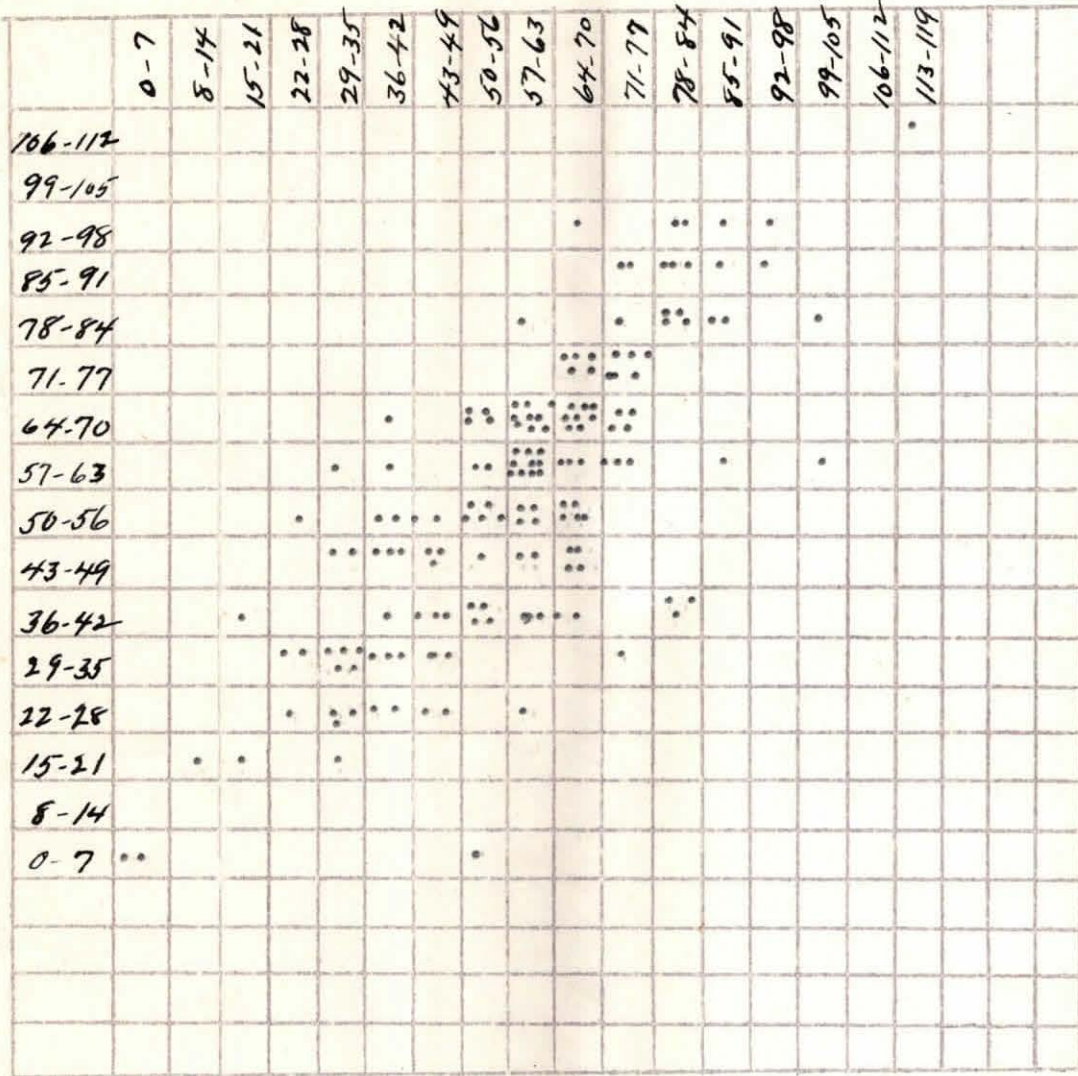 0-7 8-14 15-21 22-28 29-35 36-42 43-49 50-56 57-63 64-70 71-77 78-84 85-91 92-98 99-105 106-112 113-119
106-112
99-105
92-98
85-91
78-84
71-77
64-70
57-63
50-56
43-49
36-42
29-35
22-28
15-21
8-14
0-7